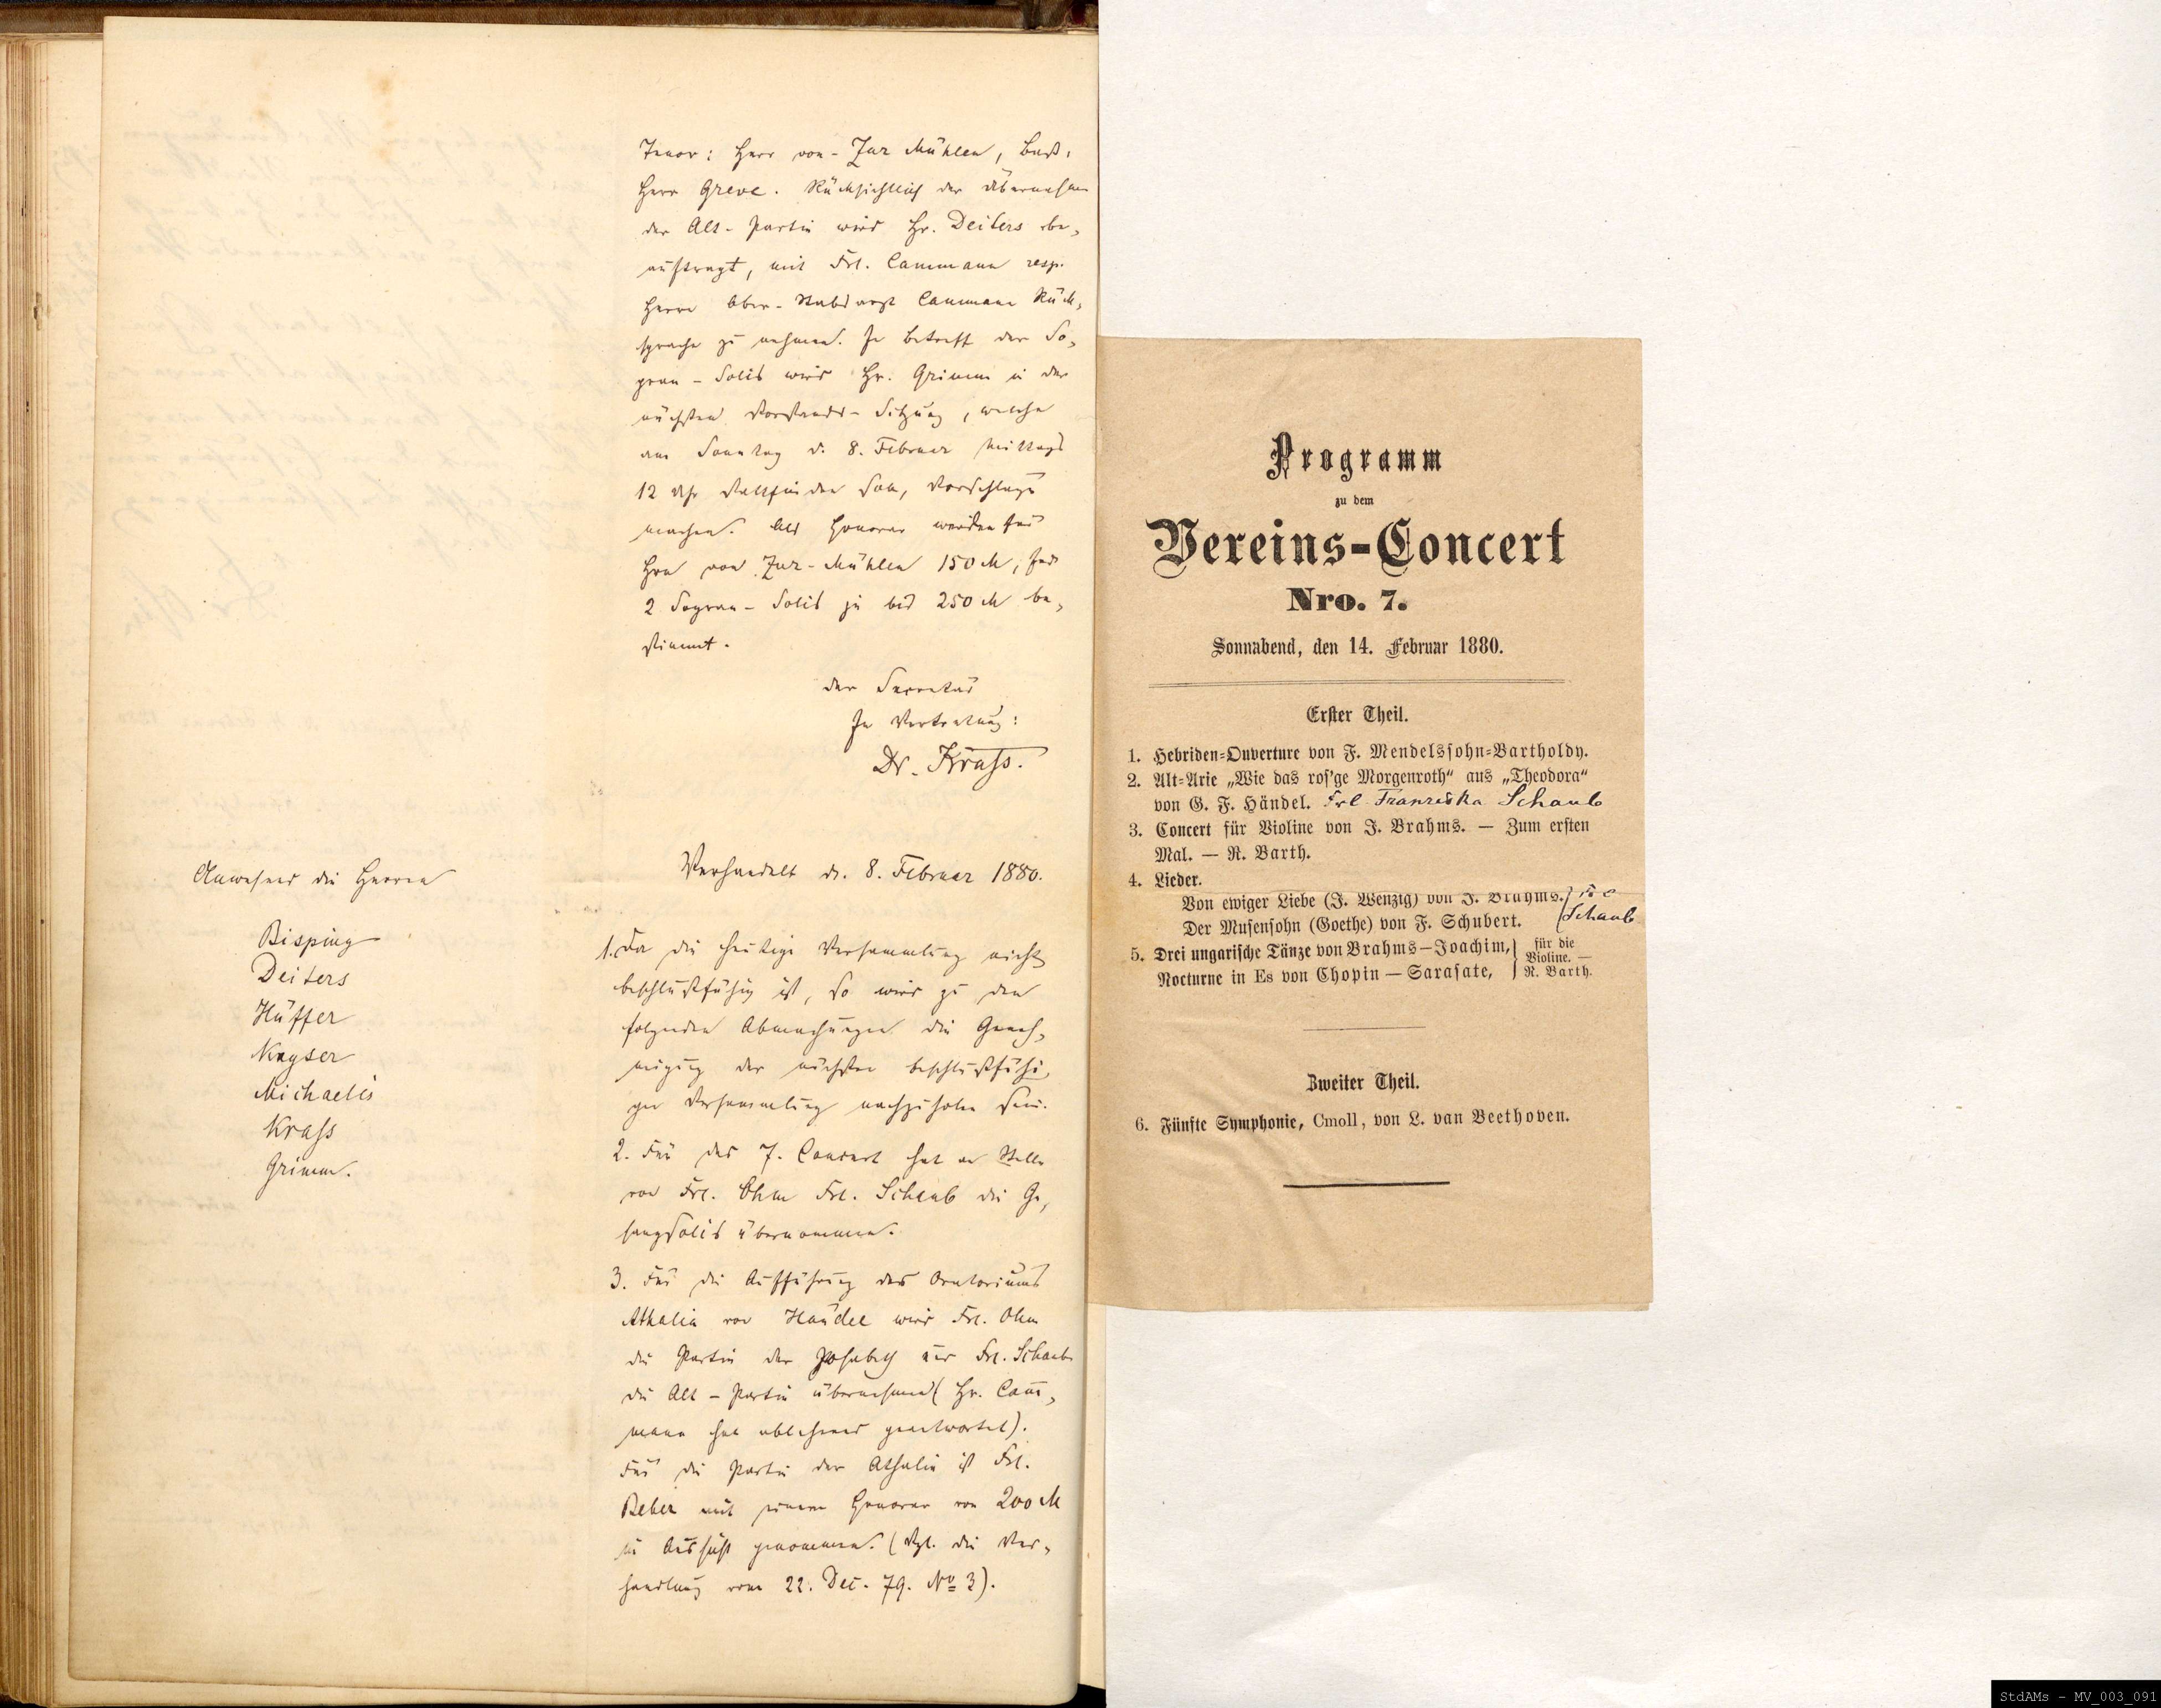 Tenor: Herr von-Zur Mühlen, Bass:
Herr Greve. Rücksichtlich der Übernahme
der Alt-Partie wird Hr. Deiters be-
auftragt, mit Frl. Cammann resp.
Herrn Ober-Stabsarzt Cammann Rück-
sprache zu nehmen. In Betreff der So-
pran-Solis wird Hr. Grimm in der
nächsten Vorstands-Sitzung, welche
am Sonntag d. 8. Februar Mittags
12 Uhr stattfinden soll, Vorschläge
machen. Als Honorar werden für
Hrn von Zur-Mühlen 150 M, für
2 Sopran-Solis je bis 250 M be-
stimmt.
Der Secretär
In Vertretung:
Dr. Krass.
Verhandelt d. 8. Februar 1880.
Anwesend die Herren
Bisping
Deiters
Hüffer
Kayser
Michaelis
Krass
Grimm.
1. Da die heutige Versammlung nicht
beschlußfähig ist, so wird zu den
folgenden Abmachungen die Geneh-
migung der nächsten beschlußfähi-
gen Versammlung nachzuholen sein.
2. Für das 7. Concert hat an Stelle
von Frl. Ohm Frl. Schaub die Ge-
sangsolis übernommen.
3. Für die Aufführung des Oratoriums
Athalia von Händel wird Frl. Ohm
die Partie der Josabeth und Frl. Schaub
die Alt-Partie übernehmen (Hr. Cam̄-
mann hat ablehnend geantwortet).
Für die Partie der Athalia ist Frl.
Beber mit einem Honorar von 200 M
in Aussicht genommen. (Vgl. die Ver-
handlung vom 22. Dec. 79. No 3).
Programm
zu dem
Vereins-Concert
Nro. 7.
Sonnabend, den 14. Februar 1880.
Erster Theil.
1. Hebriden-Ouverture von F. Mendelssohn-Bartholdy.
2. Alt-Arie „Wie das ros'ge Morgenroth“ aus „Theodora“
von G. F. Händel. Frl. Franziska Schaub
3. Concert für Violine von J. Brahms. — Zum ersten
Mal. — R. Barth.
4. Lieder.
Von ewiger Liebe (J. Wenzig) von J. Brahms.
Der Musensohn (Goethe) von F. Schubert. Schaub
5. Drei ungarische Tänze von Brahms—Joachim, für die
Violine. —
Nocturne in Es von Chopin — Sarasate, R. Barth.
Zweiter Theil.
6. Fünfte Symphonie, Cmoll, von L. van Beethoven.
StdAMs - MV_003_091